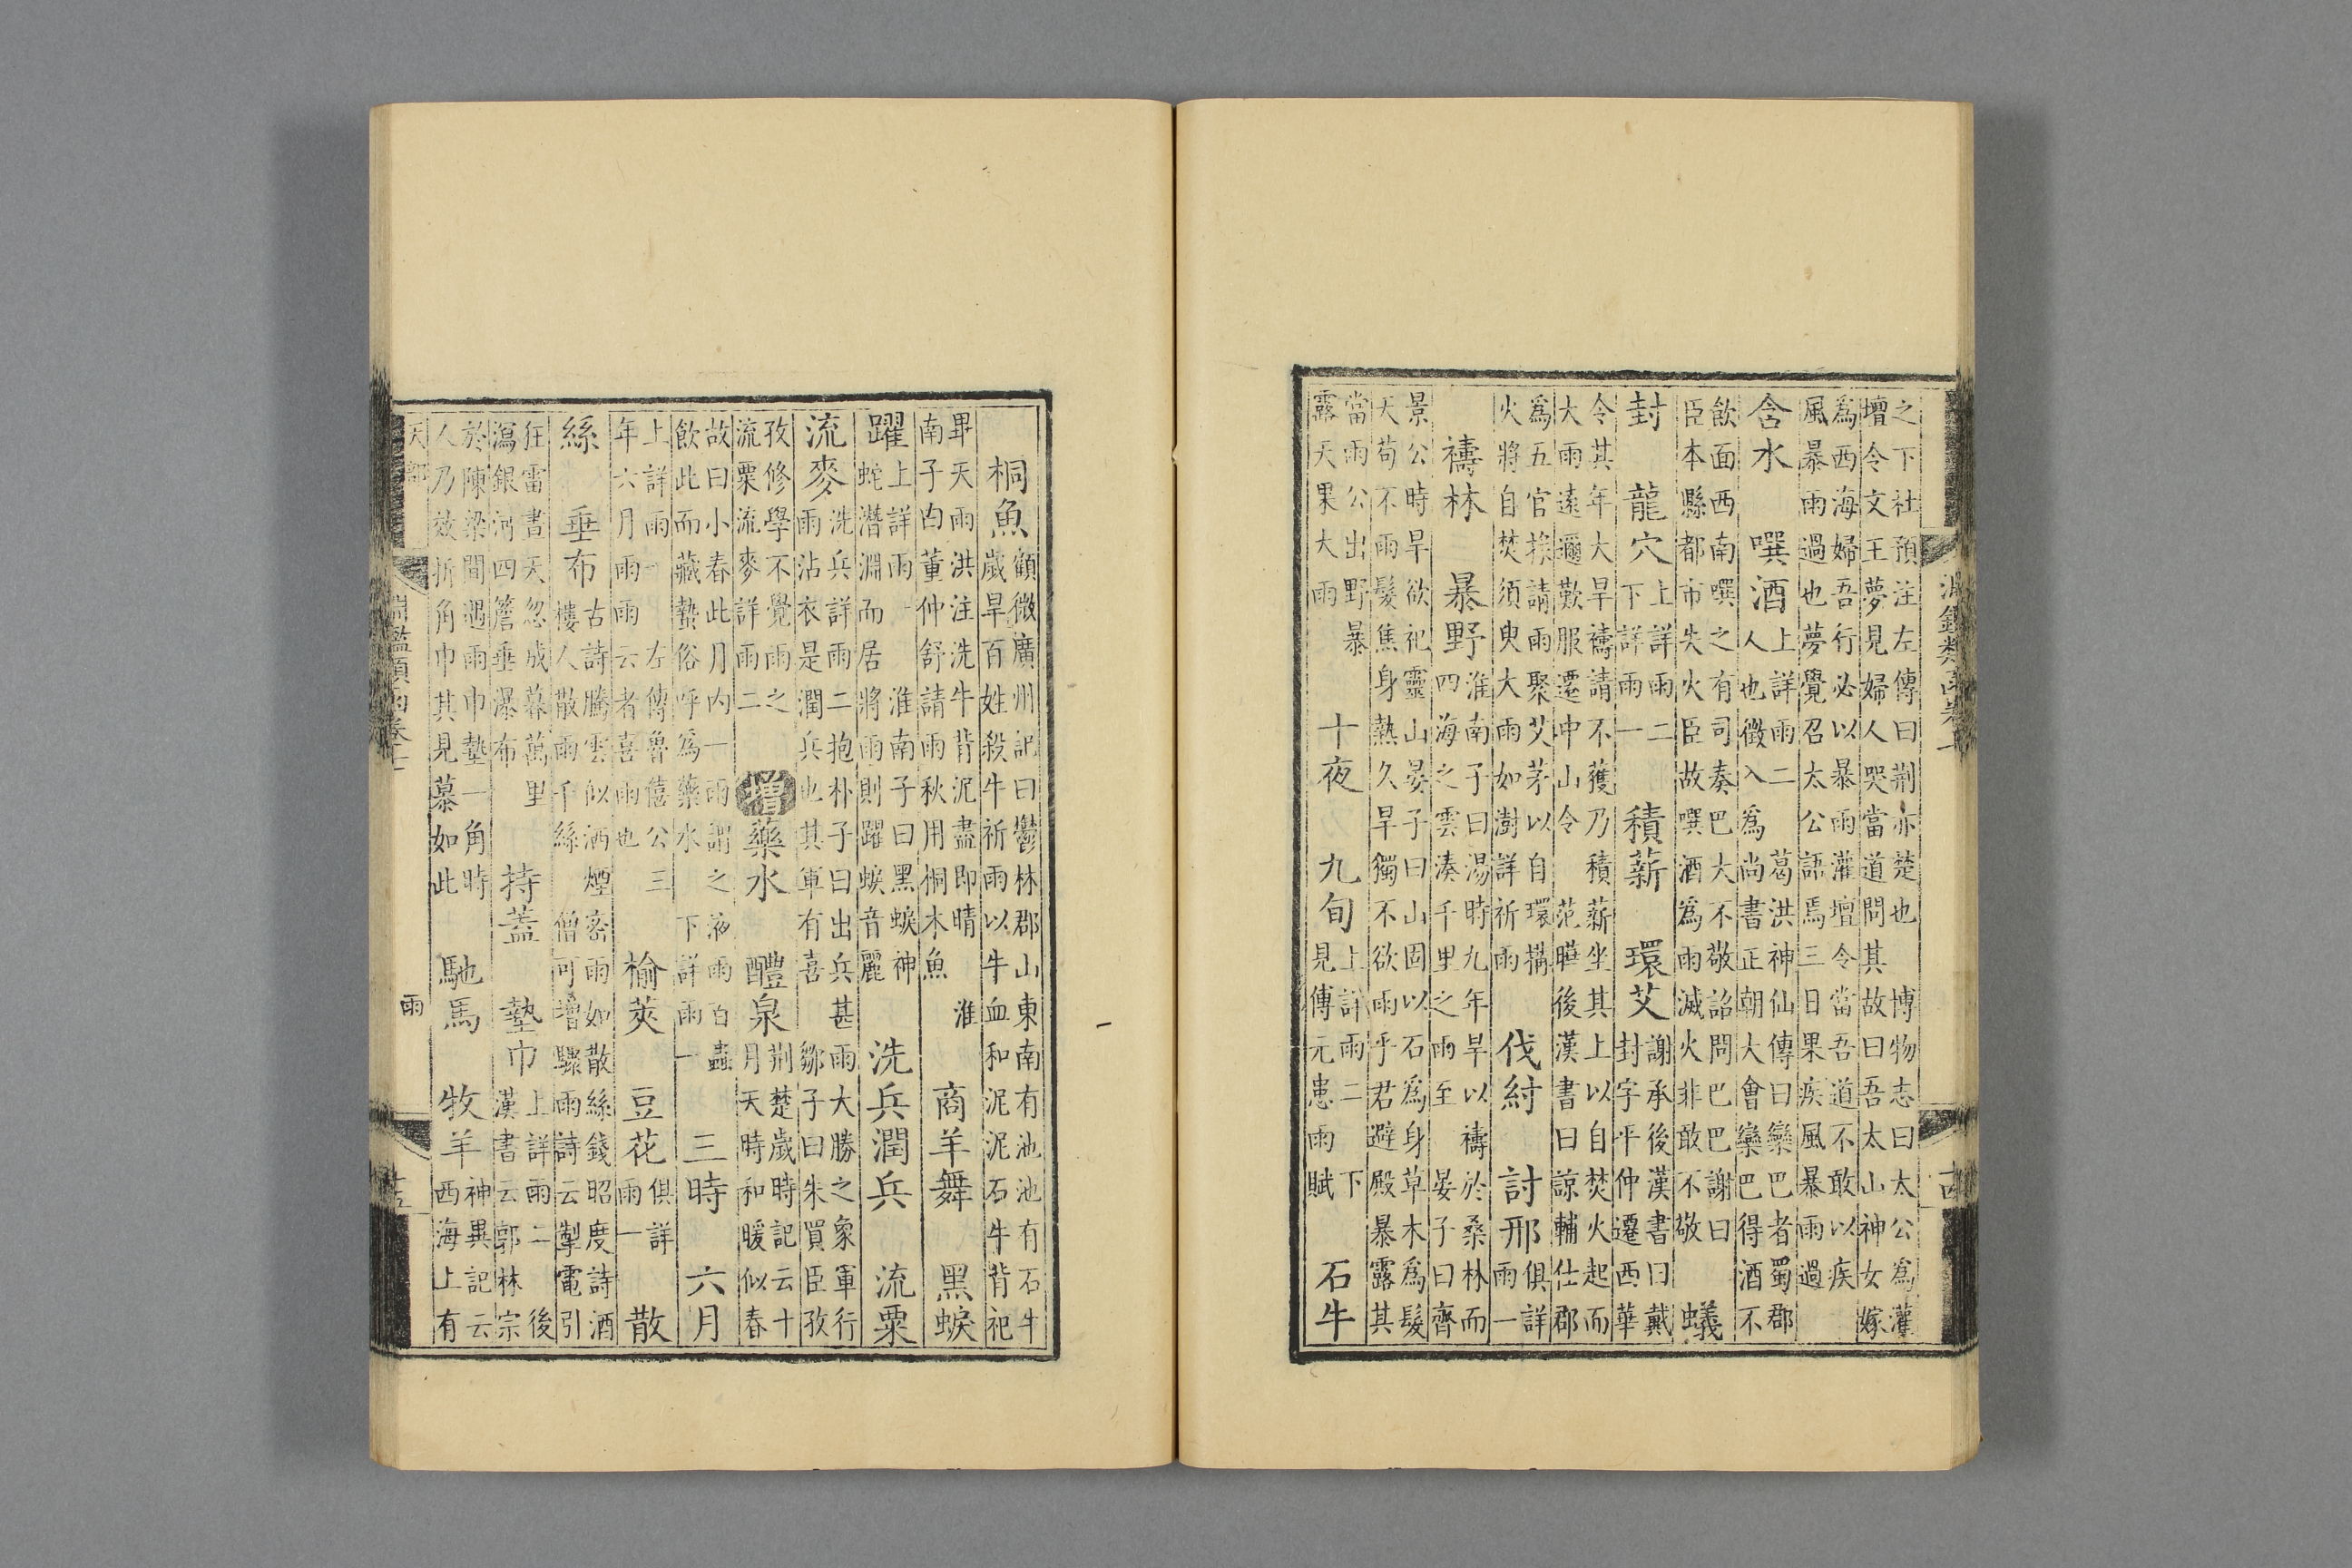 淵鑑類函卷十
之下社預注左傳曰荆亦楚也 博物志曰太公為灌
壇令文王夢見婦人哭當道問其故曰吾太山神女嫁
為西海婦吾行必以暴雨灌壇令當吾道不敢以疾
風暴雨過也夢覺召太公語焉三日果疾風暴雨過
含水 噀酒 上詳雨二 葛洪神仙傳曰欒巴者蜀郡
人也徵入為尚書正朝大會欒巴得酒不
飲面西南噀之有司奏巴大不敬詔問巴巴謝曰
臣本縣都市失火臣故噀酒為雨滅火非敢不敬 蟻
封 龍穴 上詳雨二
下詳雨一 積薪 環艾 謝承後漢書曰戴
封字平仲遷西華
令其年大旱禱請不獲乃積薪坐其上以自焚火起而
大雨遠邇歎服遷中山令 范曄後漢書曰諒輔仕郡
為五官掾請雨聚艾茅以自環搆
火將自焚須臾大雨如澍詳祈雨 伐紂 討邢 俱詳
雨一
禱林 暴野 淮南子曰湯時九年旱以禱於桑林而
四海之雲湊千里之雨至 晏子曰齊
景公時旱欲祀靈山晏子曰山固以石為身草木為髮
天苟不雨髮焦身熱久旱獨不欲雨乎君避殿暴露其
當雨公出野暴
露天果大雨 十夜 九旬 上詳雨二 下
見傳元患雨賦 石牛
桐魚 顧微廣州記曰鬱林郡山東南有池池有石牛
歲旱百姓殺牛祈雨以牛血和泥泥石牛背祀
畢天雨洪注洗牛背泥盡即晴 淮
南子曰董仲舒請雨秋用桐木魚 商羊舞 黑蜧
躍 上詳雨一 淮南子曰黑蜧神
蛇潛淵而居將雨則躍蜧音麗 洗兵潤兵 流粟
流麥 洗兵詳雨二抱朴子曰出兵甚雨大勝之象軍行
雨沾衣是潤兵也其軍有喜 鄒子曰朱買臣孜
孜修學不覺雨之
流粟流麥詳雨二 增藥水 醴泉 荆楚歲時記云十
月天時和暖似春
故曰小春此月內一雨謂之液雨百蟲
飲此而藏蟄俗呼為藥水 下詳雨一 三時 六月
上詳雨一 左傳魯僖公三
年六月雨雨云者喜雨也 榆莢 豆花 俱詳
雨一 散
絲 垂布 古詩騰雲似洒煙密雨如散絲錢昭度詩酒
樓人散雨千絲 僧可增驟雨詩云掣電引
狂雷書天忽成暮萬里
瀉銀河四簷垂瀑布 持蓋 墊巾 上詳雨二 後
漢書云郭林宗
於陳梁間遇雨巾墊一角時
人乃效折角巾其見慕如此 馳馬 牧羊 神異記云
西海上有
天部 淵鑑類函卷十 雨